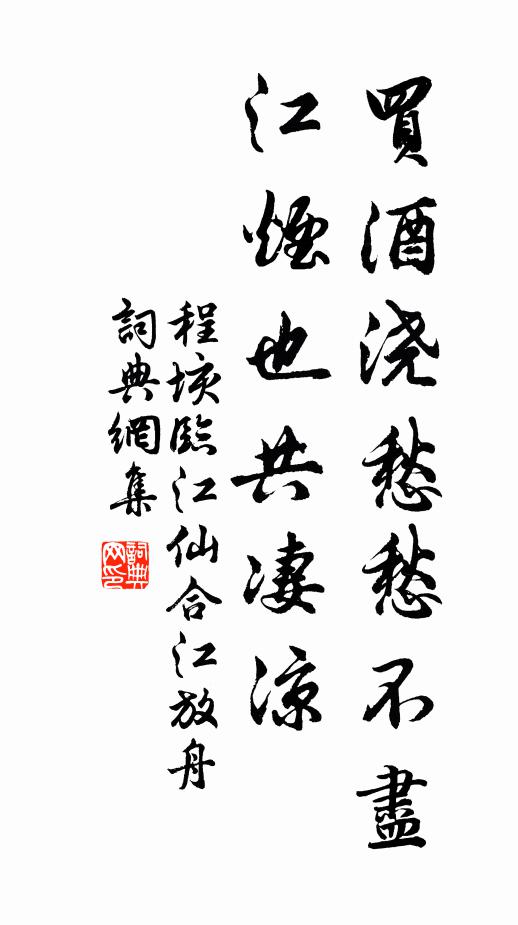 買酒浇愁愁不盡
江煙也共凄涼
程垓臨江仙合江放舟
詞典網集
詞典
网印